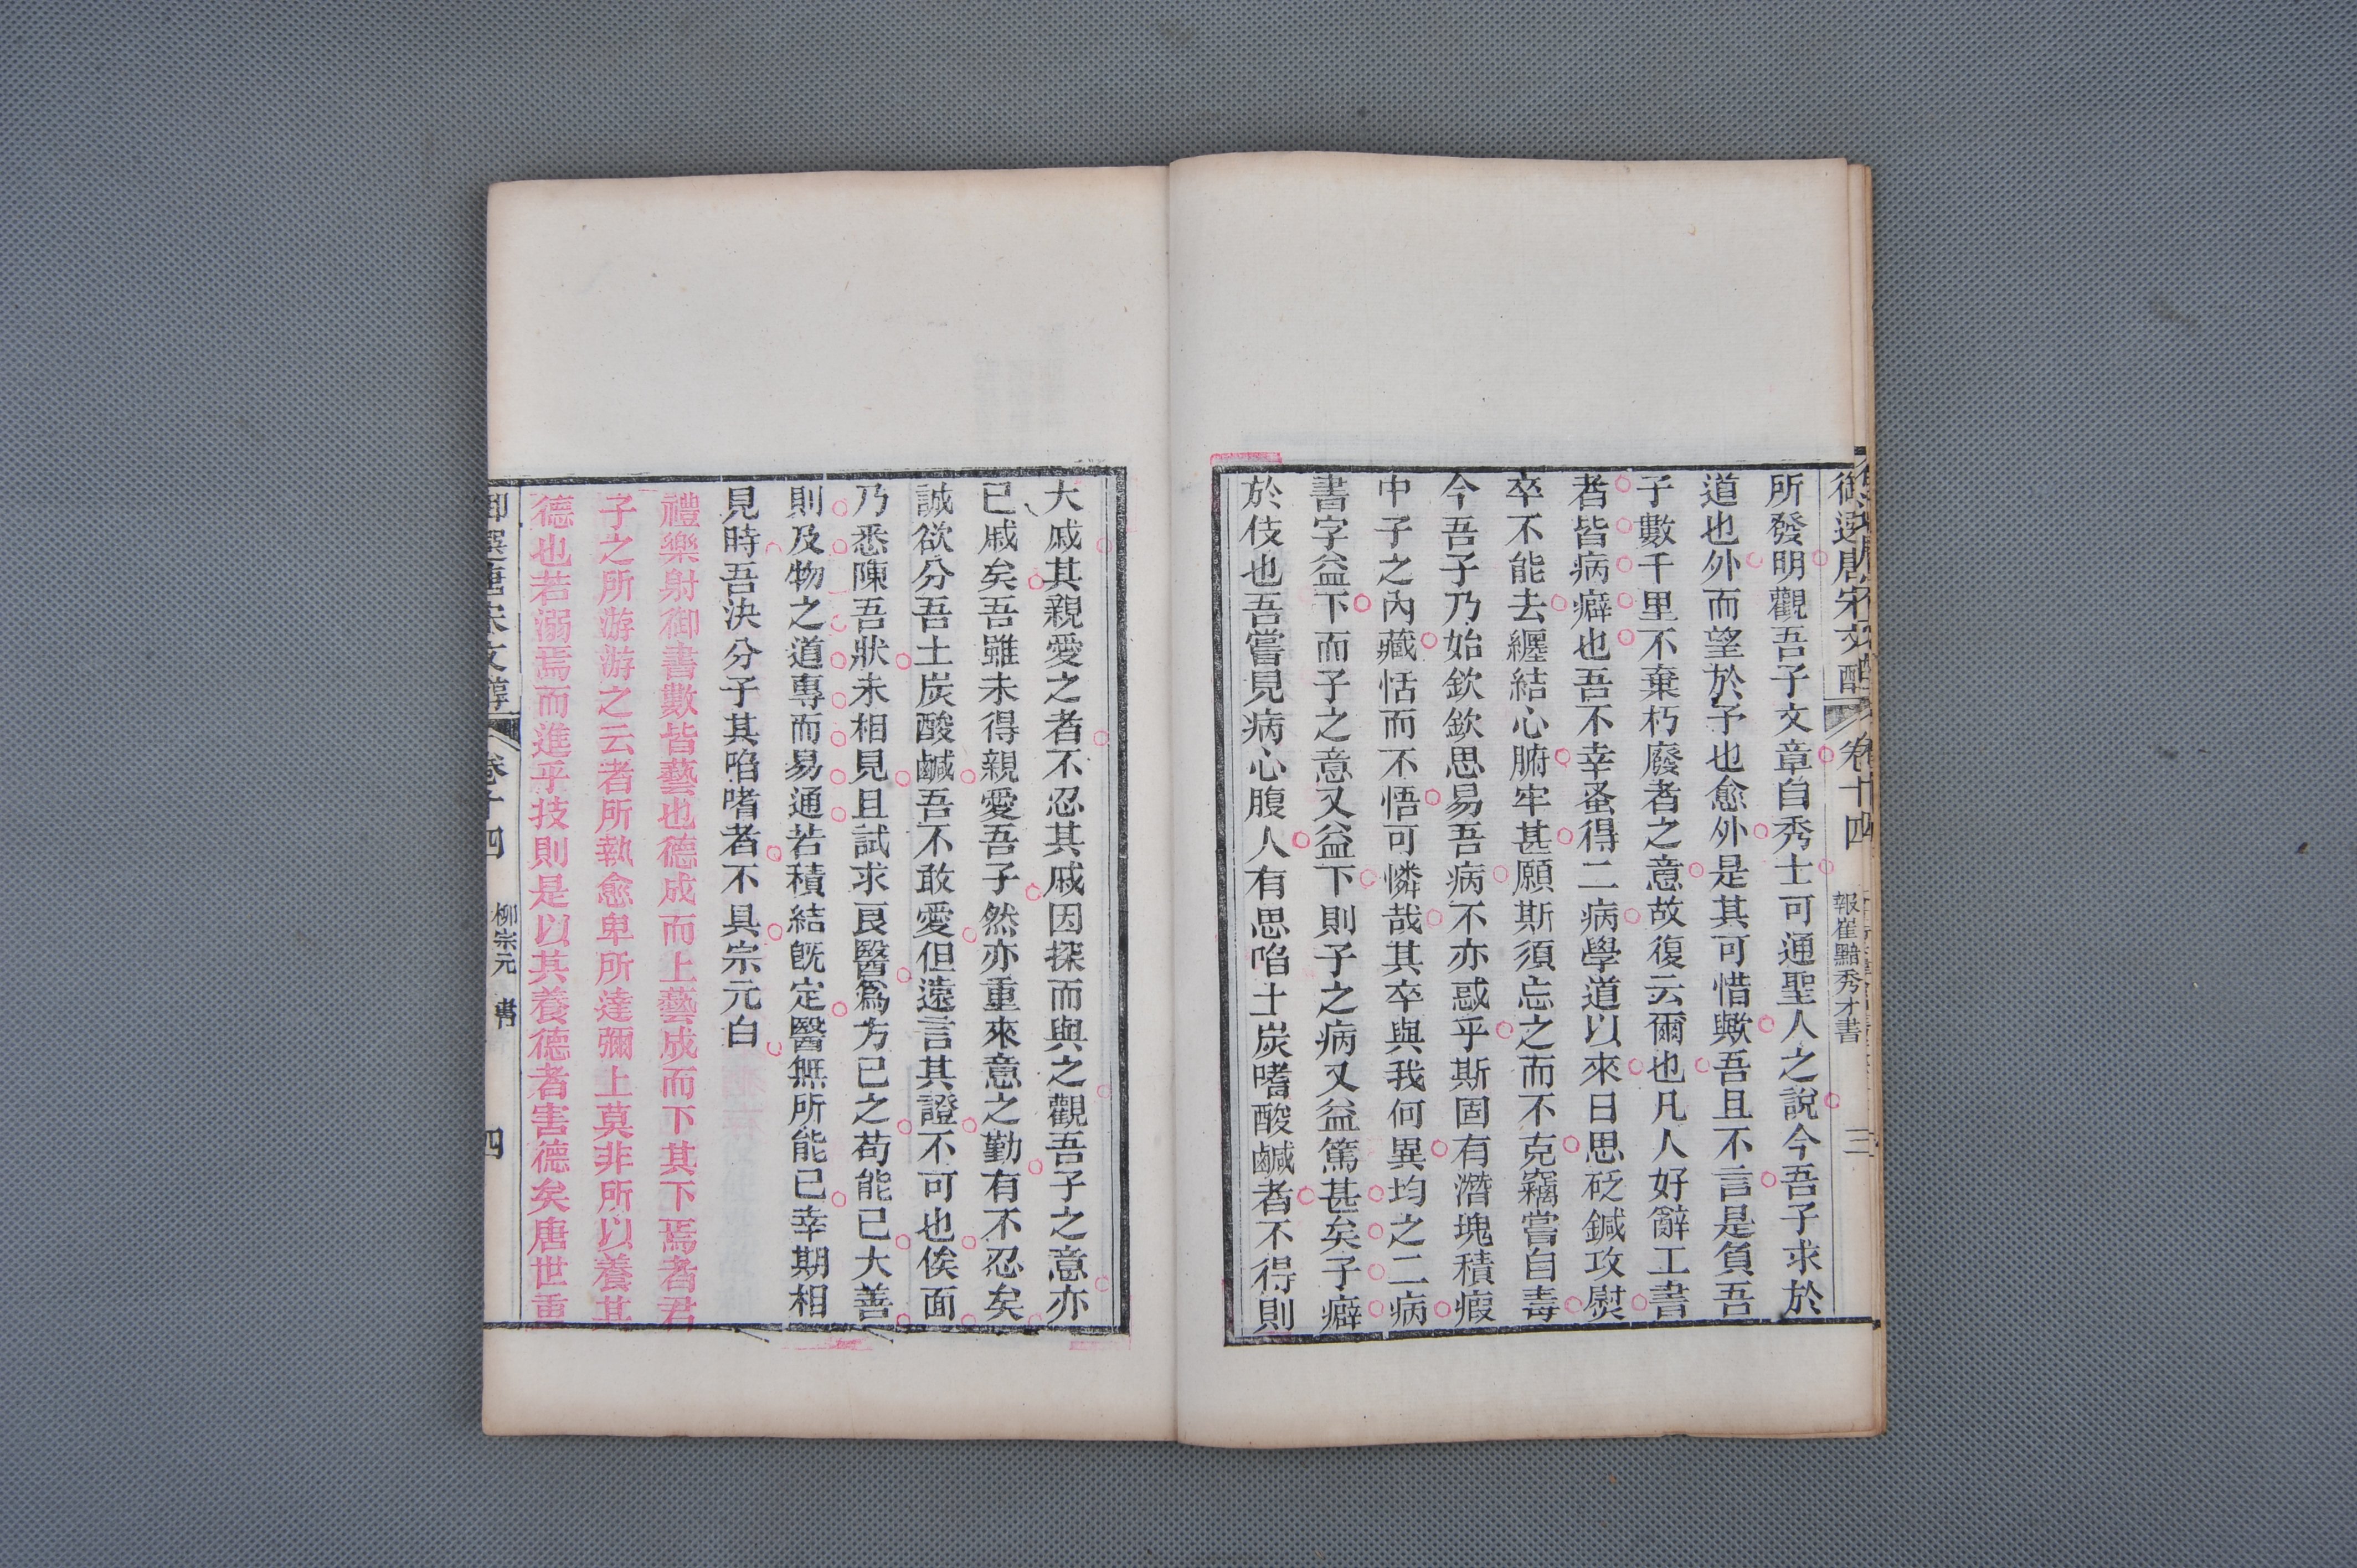 御選唐宋文醇 卷十四 報崔黯秀才書 三
所發明觀吾子文章自秀士可通聖人之說今吾子求於
道也外而望於予也愈外是其可惜歟吾且不言是負吾
子數千里不棄朽廢者之意故復云爾也凡人好辭工書
者皆病癖也吾不幸蚤得二病學道以來日思砭鍼攻熨
卒不能去纏結心腑牢甚願斯須忘之而不克竊嘗自毒
今吾子乃始欽欽思易吾病不亦惑乎斯固有潛塊積瘕
中子之內藏恬而不悟可憐哉其卒與我何異均之二病
書字益下而子之意又益下則子之病又益篤甚矣子癖
於伎也吾嘗見病心腹人有思啗土炭嗜酸鹹者不得則
大戚其親愛之者不忍其戚因探而與之觀吾子之意亦
已戚矣吾雖未得親愛吾子然亦重來意之勤有不忍矣
誠欲分吾土炭酸鹹吾不敢愛但遠言其證不可也俟面
乃悉陳吾狀未相見且試求良醫為方已之苟能已大善
則及物之道專而易通若積結既定醫無所能已幸期相
見時吾決分子其啗嗜者不具宗元白
禮樂射御書數皆藝也德成而上藝成而下其下焉者君
子之所游游之云者所執愈卑所達彌上莫非所以養其
德也若溺焉而進乎技則是以其養德者害德矣唐世重
御選唐宋文醇 卷十四 柳宗元 書 四